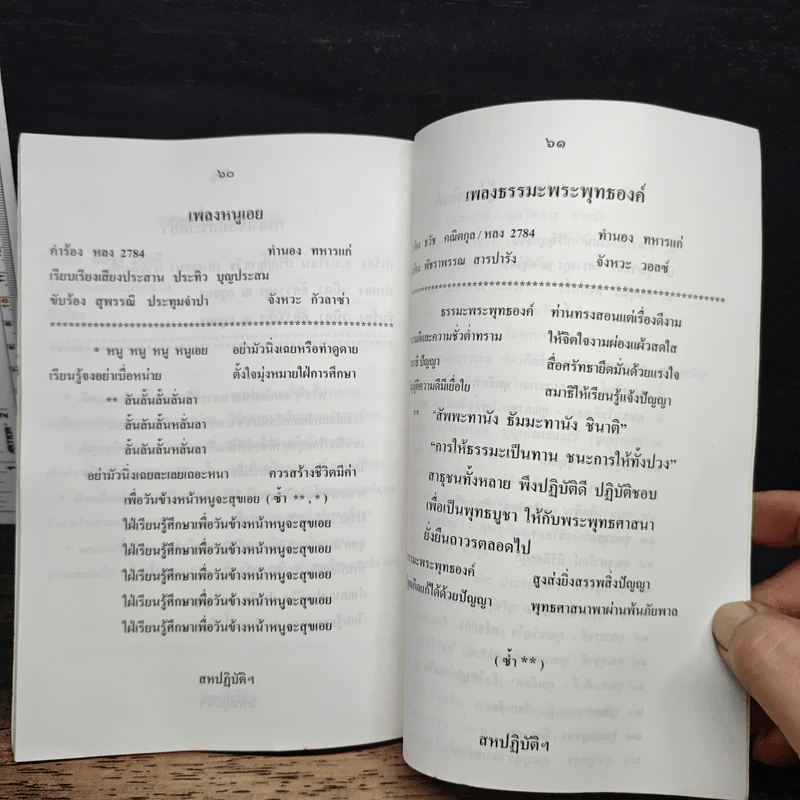 ๖๐
เพลงหนูเอย
คำร้อง หลง 2784 ทำนอง ทหารแก่
เรียบเรียงเสียงประสาน ประทิว บุญประสม
ขับร้อง สุพรรณี ประทุมจำปา จังหวะ กัวลาซ่า
* หนู หนู หนู หนูเอย อย่ามัวนิ่งเฉยหรือทำดูดาย
เรียนรู้จงอย่าเบื่อหน่าย ตั้งใจมุ่งหมายใฝ่การศึกษา
** ลันลั้นลั้นลั่นลา
ลั้นลันลั้นหลั่นลา
ลั้นลันลั้นหลั่นลา
อย่ามัวนิ่งเฉยละเลยเถอะหนา ควรสร้างชีวิตมีค่า
เพื่อวันข้างหน้าหนูจะสุขเอย ( ซ้ำ ** , * )
ใฝ่เรียนรู้ศึกษาเพื่อวันข้างหน้าหนูจะสุขเอย
ใฝ่เรียนรู้ศึกษาเพื่อวันข้างหน้าหนูจะสุขเอย
ใฝ่เรียนรู้ศึกษาเพื่อวันข้างหน้าหนูจะสุขเอย
ใฝ่เรียนรู้ศึกษาเพื่อวันข้างหน้าหนูจะสุขเอย
ใฝ่เรียนรู้ศึกษาเพื่อวันข้างหน้าหนูจะสุขเอย
สหปฏิบัติฯ
๖๑
เพลงธรรมะพระพุทธองค์
ธวัช คณิตกูล / หลง 2784 ทำนอง ทหารแก่
พัชราพรรณ สารปารัง จังหวะ วอลซ์
ธรรมะพระพุทธองค์ ท่านทรงสอนแต่เรื่องดีงาม
และความชั่วต่ำทราม ให้จิตใจงามผ่องแผ้วสดใส
ปัญญา สื่อศรัทธายึดมั่นด้วยแรงใจ
ความดีมีเยื่อใย สมาธิให้เรียนรู้แจ้งปัญญา
** "สัพพะทานัง ธัมมะทานัง ชินาติ"
"การให้ธรรมะเป็นทาน ชนะการให้ทั้งปวง"
สาธุชนทั้งหลาย พึงปฏิบัติดี ปฏิบัติชอบ
เพื่อเป็นพุทธบูชา ให้กับพระพุทธศาสนา
ยั่งยืนถาวรตลอดไป
พระพุทธองค์ สูงส่งยิ่งสรรพสิ่งปัญญา
แก้ได้ด้วยปัญญา พุทธศาสนาพาผ่านพ้นภัยพาล
( ซ้ำ ** )
สหปฏิบัติฯ